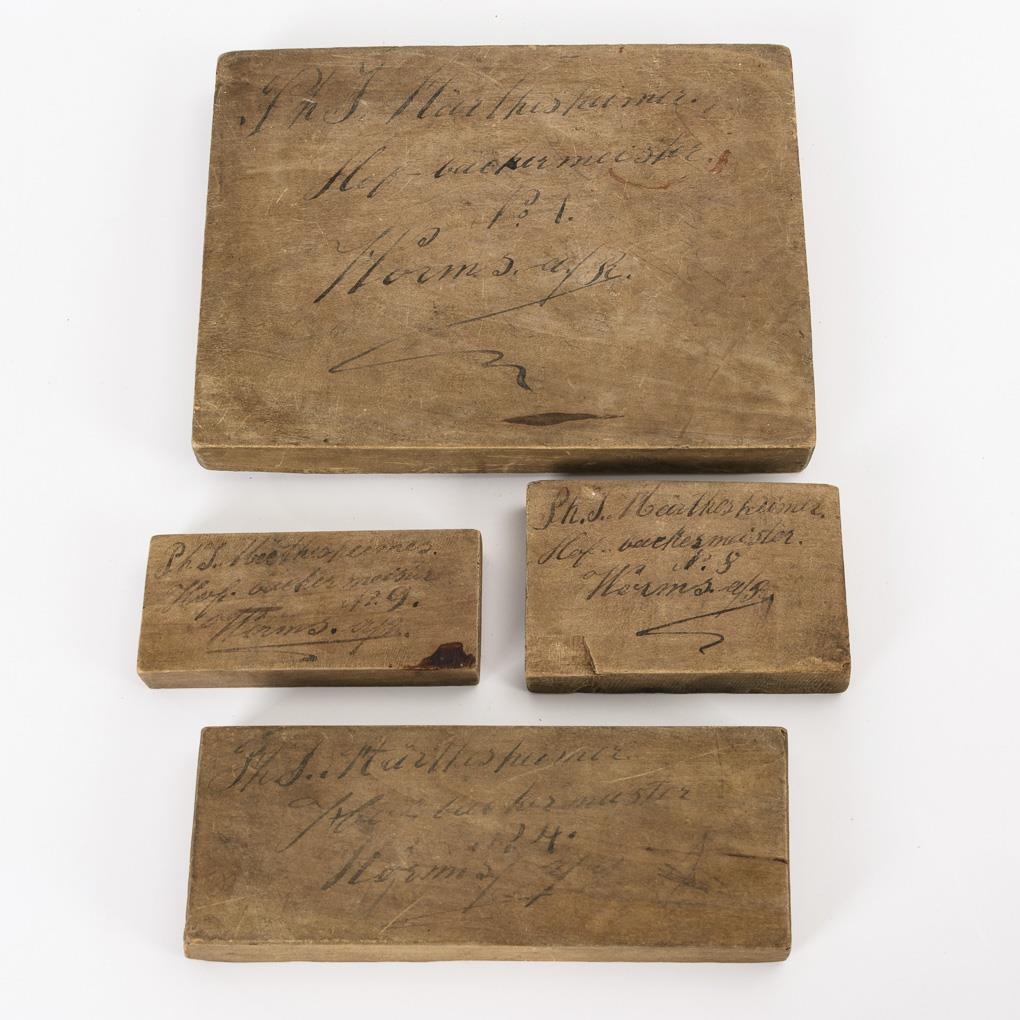 Ph. J. Märthesheimer.
Hof-bäckermeister.
No 1.
Worms. a/R.
Ph. J. Märthesheimer.
Hof-bäckermeister
No. 9.
Worms. a/R.
Ph. J. Märthesheimer.
Hof-bäckermeister.
No. 8
Worms. a/R.
Ph. J. Märthesheimer.
Hof-bäckermeister
No 4.
Worms a/R